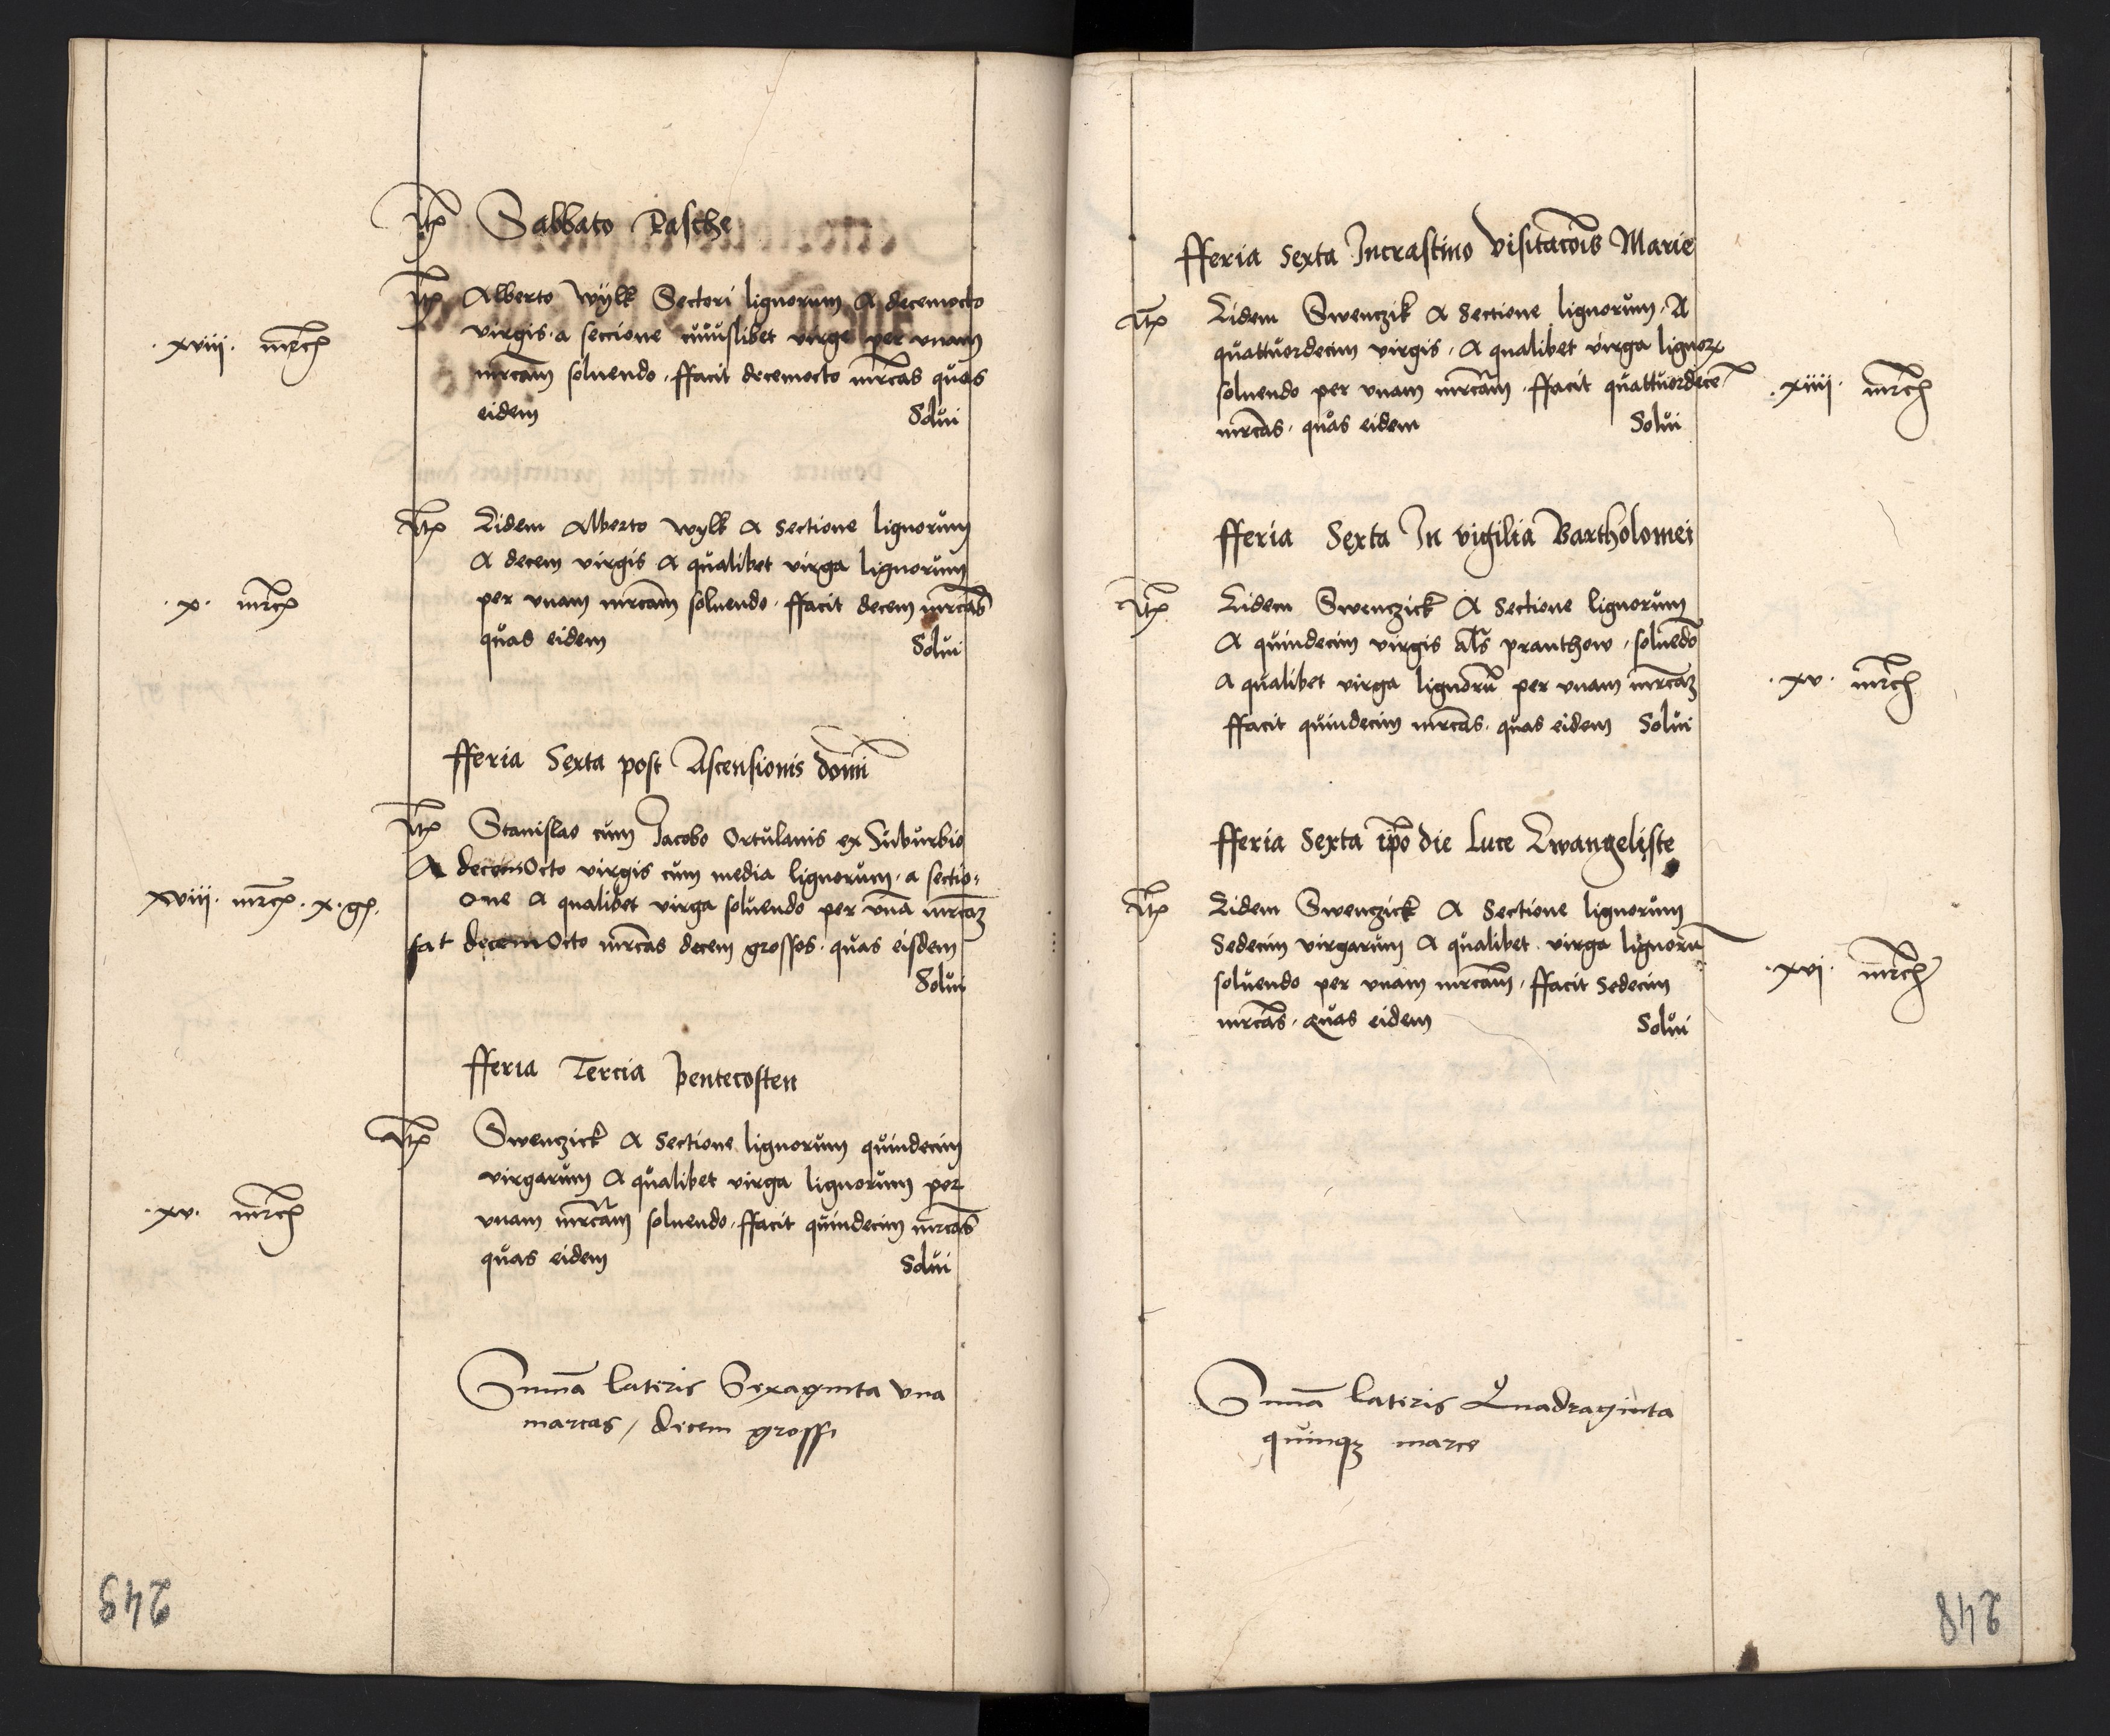 Itm Sabbato Pasche
Itm Alberto Wÿlk Sectori lignorum A decemocto
virgis · a seccione cuiuslibet virge per vnam
mrcam soluendo · ffacit decemocto mrcas quas
eidem Solui
· xviii · mrc
Itm Eidem Alberto Wylk A Sectione lignorum
A decem virgis A qualibet virga lignorum
per vnam mrcam soluendo · ffacit decem mrcas
quas eidem Solui
· x · mrc
fferia Sexta post Ascensionis domi
Itm Stanislao cum Jacobo Ortulanis ex Suburbio
A decemOcto virgis cum media lignorum · a sectio=
one A qualibet virga soluendo per vna mrcaz
fat decemOcto mrcas decem grossos · quas eisdem
Solui
xviii · mrc · x · gr
fferia Tercia Pentecosten
Itm Swenczick A Sectione lignorum quindecim
virgarum A qualibet virga lignorum per
vnam mrcam soluendo · ffacit quindecim mrcas
quas eidem Solui
· xv · mrc
Suma lateris Sexaginta vna
marcas / decem grossi
249
fferia Sexta Incrastino Visitacois Marie
Itm Eidem Swenczik A Sectione lignorum · A
quattuordecim virgis · A qualibet virga lignor
soluendo per vnam mrcam · ffacit quattuordece
mrcas · quas eidem Solui
· xiiii · mrc
fferia Sexta In vigilia Bartholomei
Itm Eidem Swenczick A Sectione lignorum
A quindecim virgis als pranthow · soluedo
A qualibet virga lignoru per vnam mrcaz
ffacit quindecim mrcas · quas eidem Solui
· xv · mrc
fferia Sexta ipo die Luce Ewangeliste
Itm Eidem Swenczick A Sectione lignorum
Sedecim virgarum A qualibet virga lignoru
soluendo per vnam mrcam · ffacit Sedecim
mrcas · quas eidem Solui
· xvi · mrc
Suma lateris Quadraginta
quinqz marce
248